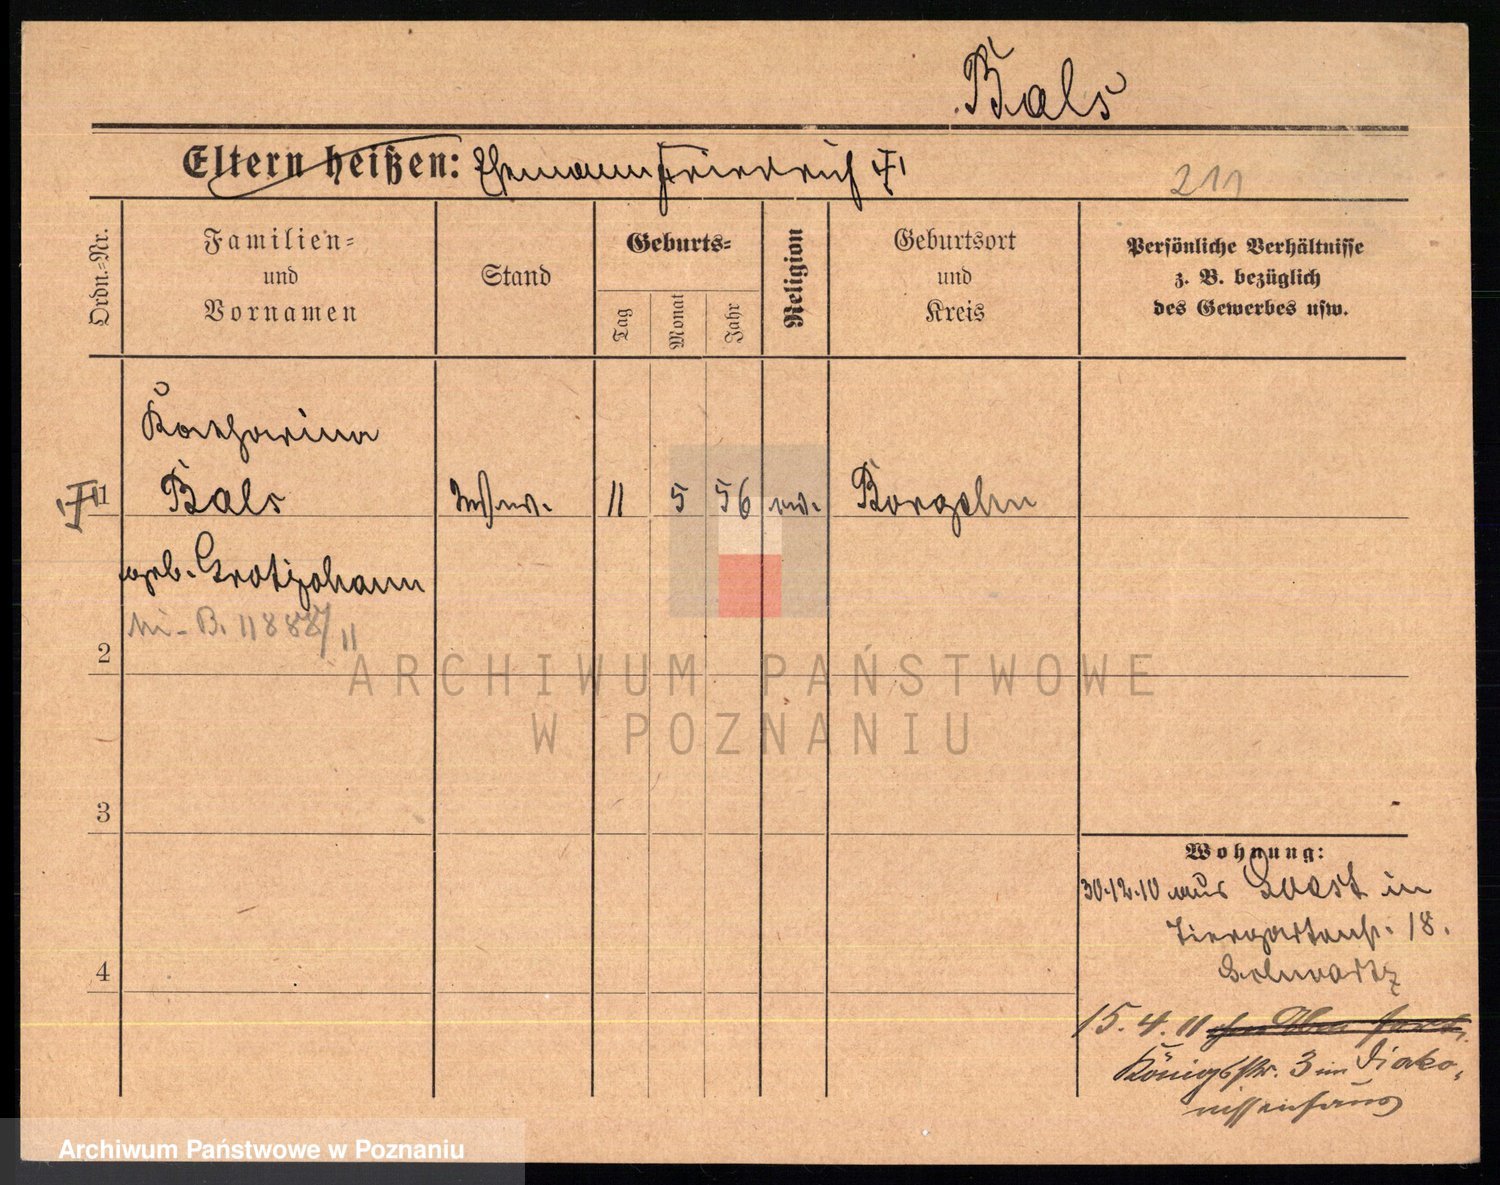 Bals
Eltern heißen: Ehemann Friedrich
211
Ordn.-Nr.
Familien-
und
Vornamen
Stand
Geburts-
Tag
Monat
Jahr
Religion
Geburtsort
und
Kreis
Persönliche Verhältnisse
z. B. bezüglich
des Gewerbes usw.
Katharina
1 Bals Wwe. 11 5 56 ev. Borgeln
geb. Grotjohann
B. 11888/11
2
3
4
Wohnung:
30.12.10 aus Soest in
Tiergartenstr. 18.
Schwartz
15.4.11
Königstr. 3 im Diako-
nissenhaus
ARCHIWUM PAŃSTWOWE
W POZNANIU
Archiwum Państwowe w Poznaniu